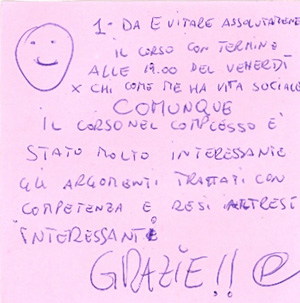 1- DA EVITARE ASSOLUTAMENTE
IL CORSO CON TERMINE
ALLE 19.00 DEL VENERDÌ
X CHI COME ME HA VITA SOCIALE
COMUNQUE
IL CORSO NEL COMPLESSO E'
STATO MOLTO INTERESSANTE
GLI ARGOMENTI TRATTATI CON
COMPETENZA E RESI ALTRESI
INTERESSANTI
GRAZIE!!